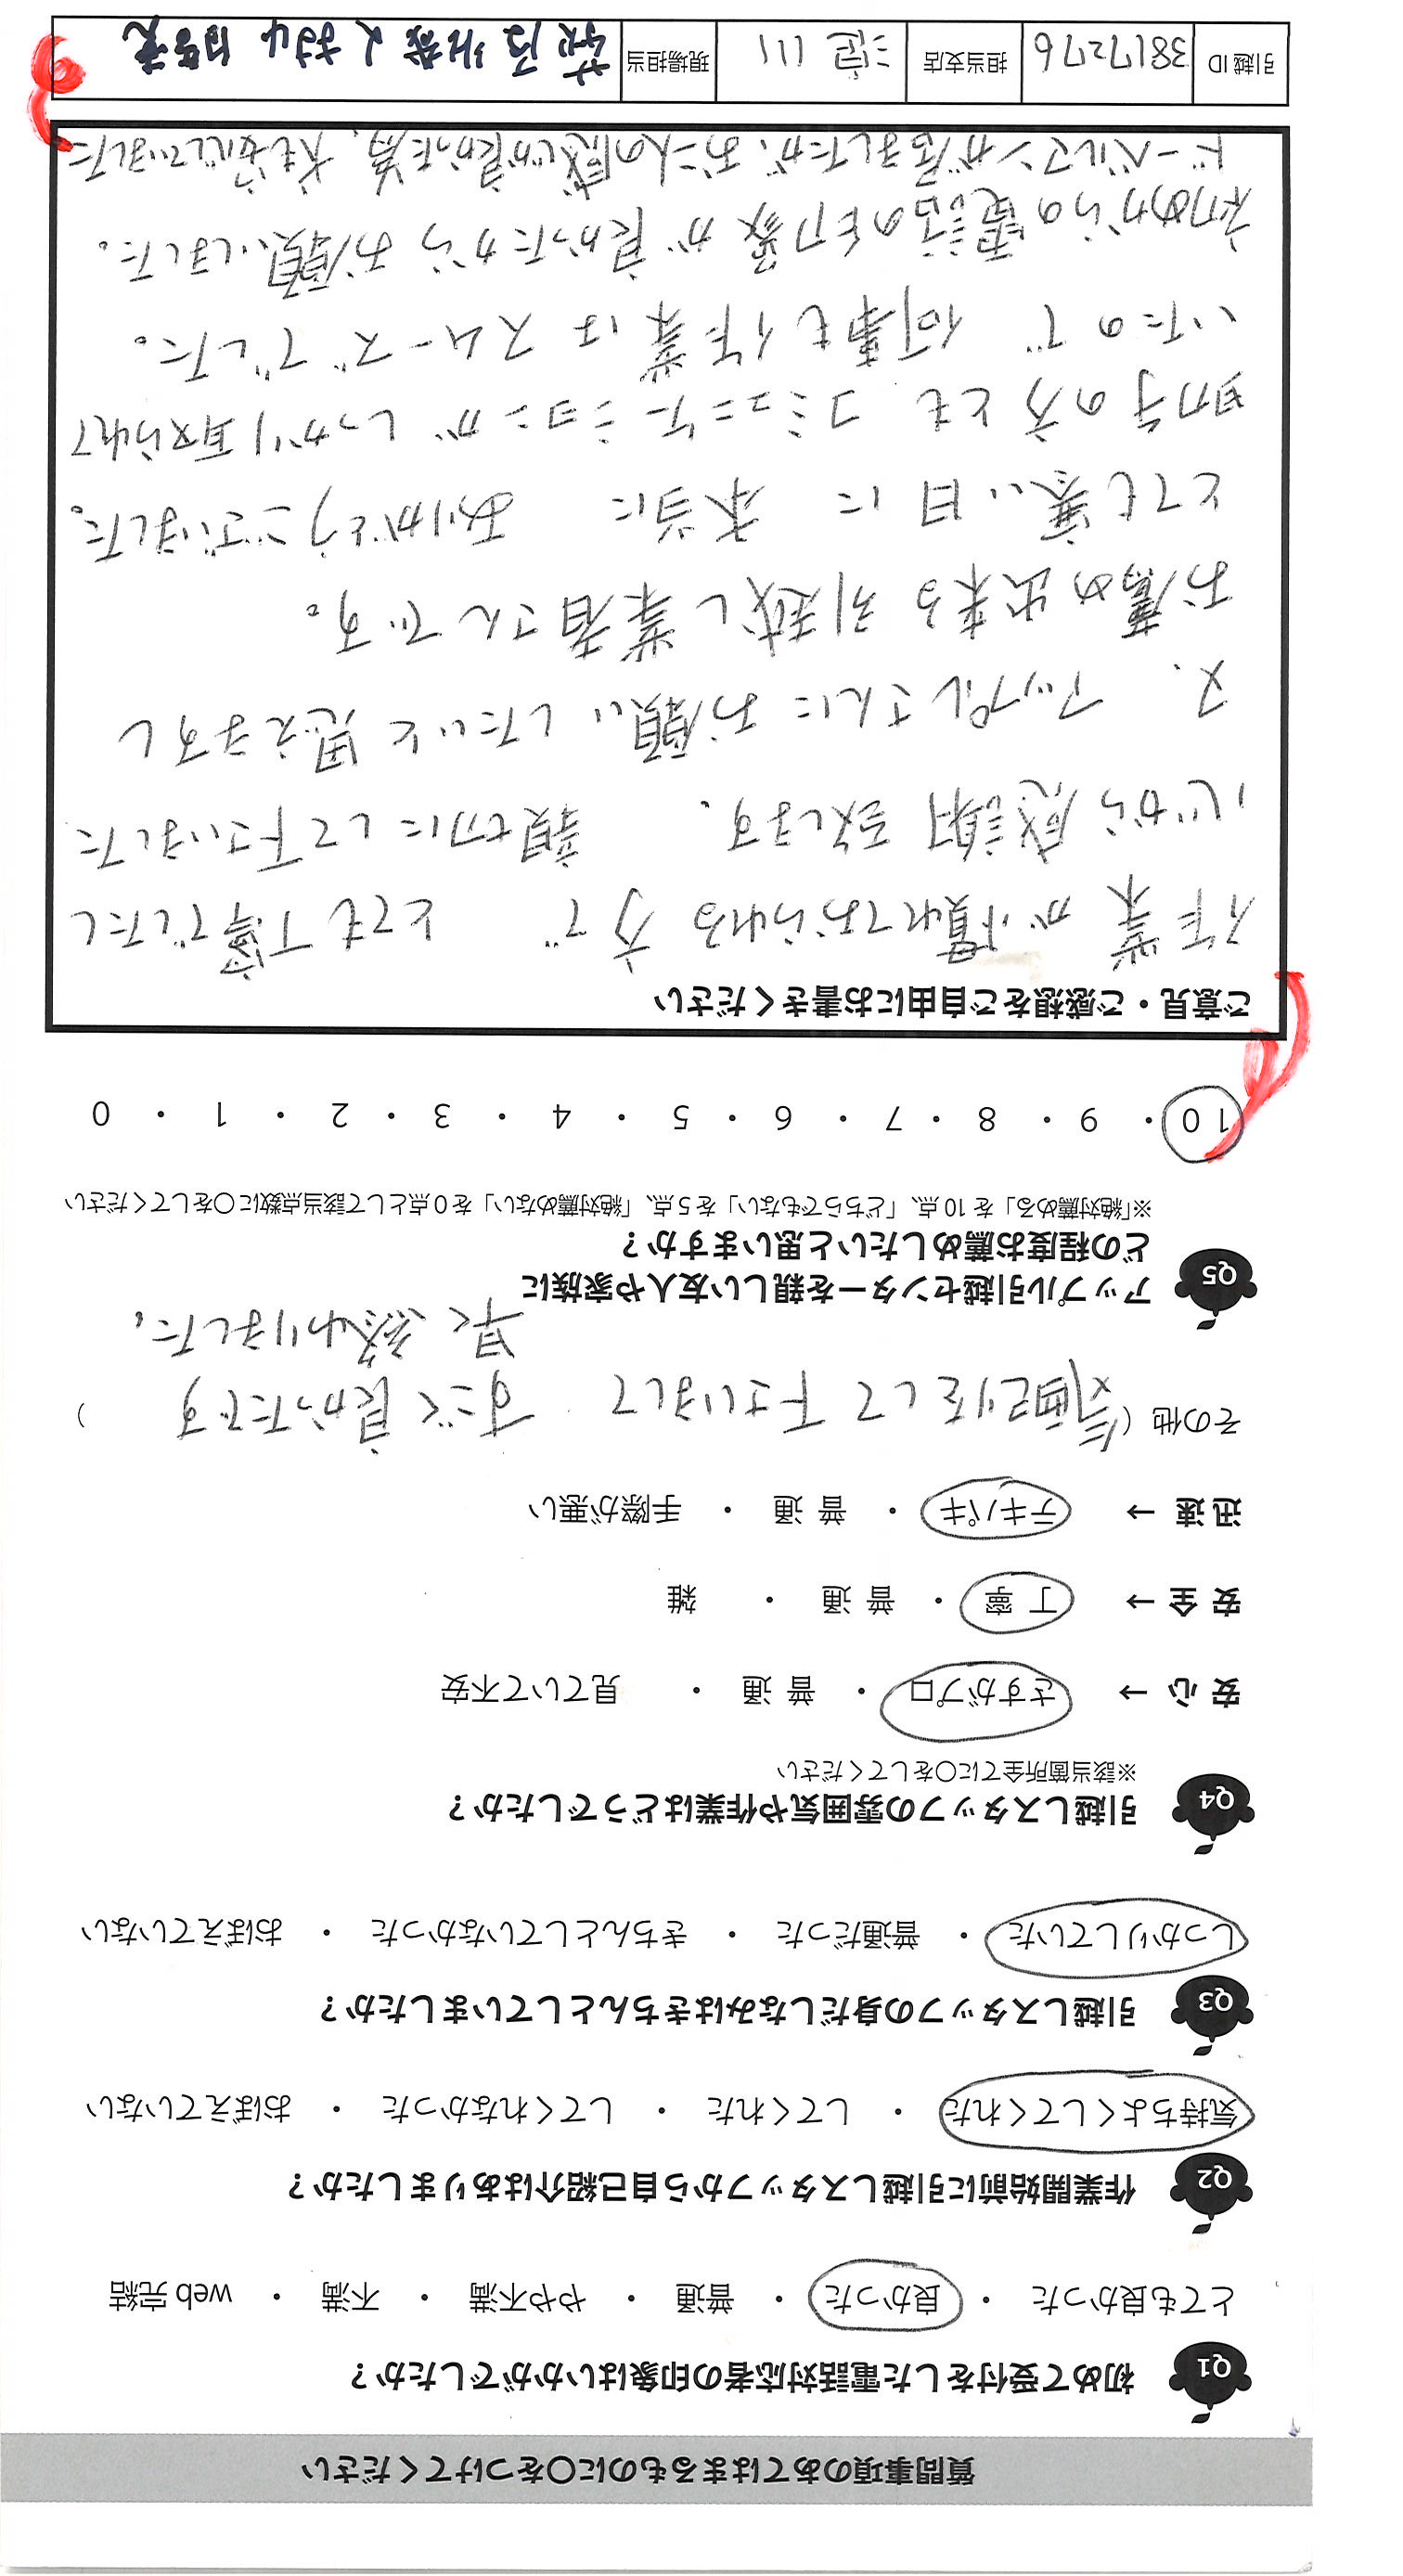 質問事項のあてはまるものに○をつけてください
Q1 初めて受付をした電話対応者の印象はいかがでしたか？
とても良かった ・ 良かった ・ 普通 ・ やや不満 ・ 不満 ・ web 完結
Q2 作業開始前に引越しスタッフから自己紹介はありましたか？
気持ちよくしてくれた ・ してくれた ・ してくれなかった ・ おぼえていない
Q3 引越しスタッフの身だしなみはきちんとしていましたか？
しっかりしていた ・ 普通だった ・ きちんとしていなかった ・ おぼえていない
Q4 引越しスタッフの雰囲気や作業はどうでしたか？
※該当箇所全てに○をしてください
安 心 → さすがプロ ・ 普 通 ・ 見ていて不安
安 全 → 丁 寧 ・ 普 通 ・ 雑
迅 速 → テキパキ ・ 普 通 ・ 手際が悪い
その他（気配りをして下さいまして すごく良かったです ）
早く終わりました。
Q5 アップル引越センターを親しい友人や家族に
どの程度お薦めしたいと思いますか？
※「絶対薦める」を 10 点、「どちらでもない」を 5 点、「絶対薦めない」を 0 点として該当点数に○をしてください
10 ・ 9 ・ 8 ・ 7 ・ 6 ・ 5 ・ 4 ・ 3 ・ 2 ・ 1 ・ 0
ご意見・ご感想をご自由にお書きください
作業が慣れておられる方で とても丁寧でしたし
心から感謝致します。 親切にして下さいました
又、アップルさんにお願いしたいと思えますし
お薦め出来る引越し業者さんです。
とても寒い日に 本当に ありがとうございました。
助手の方とも コミュニケーションがしっかり取られて
いたので 何事も作業はスムーズでした。
初めからの電話の印象が良かったからお願いしました。
ドーベルマンが居ましたが、お二人の感じが良かった為、犬も安心していました
引越 ID 3817276 担当支店 淀川 現場担当